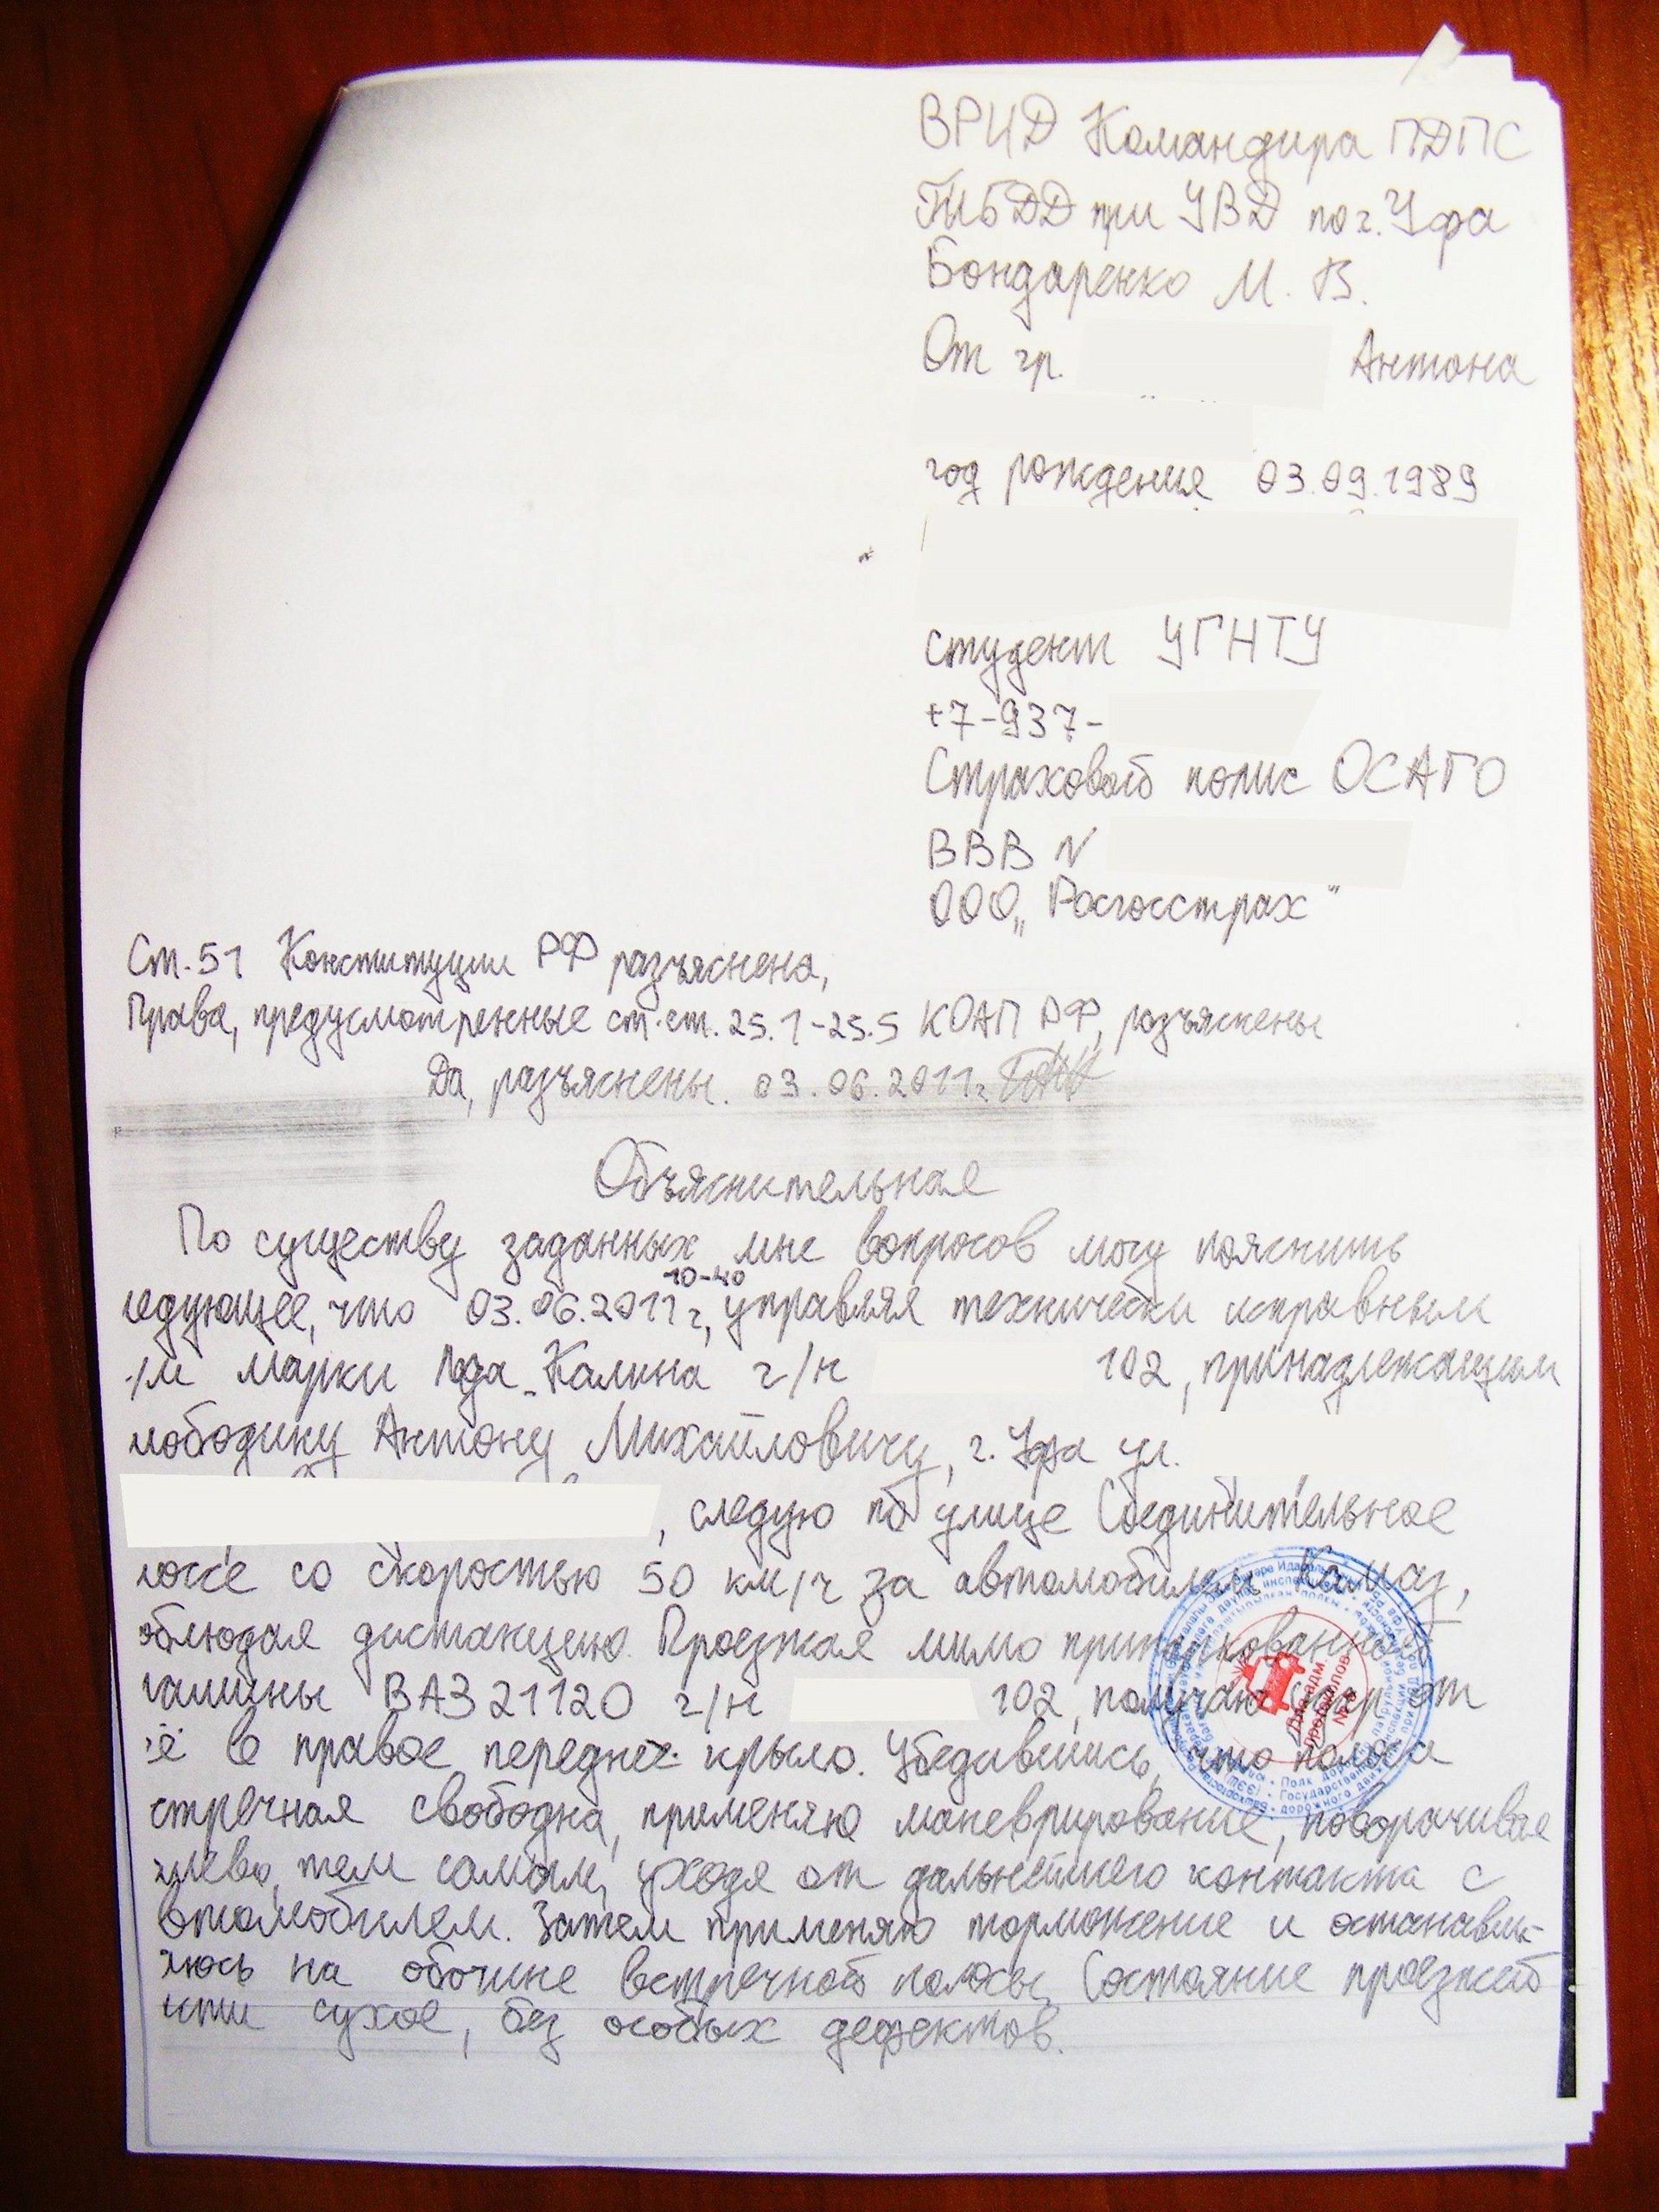 ВРИД Командира ПДПС
ГИБДД при УВД по г. Уфа
Бондаренко М. В.
От гр. Антона
год рождения 03.09.1989
студент УГНТУ
+7-937-
Страховой полис ОСАГО
ВВВ N
ООО „Росгосстрах"
Ст. 51 Конституции РФ разъяснена,
Права, предусмотренные ст.ст. 25.1-25.5 КОАП РФ, разъяснены
Да, разъяснены. 03.06.2011г.
Объяснительная
По существу заданных мне вопросов могу пояснить
10-40
ледующее, что 03.06.2011г, управляя технически исправным
/м марки Лада-Калина г/н 102, принадлежащим
лободину Антону Михайловичу, г. Уфа ул.
, следую по улице Соединительное
оссе со скоростью 50 км/ч за автомобилем Камаз,
облюдая дистанцию. Проезжая мимо припаркованной
ашины ВАЗ 21120 г/н 102, получаю удар от
её в правое переднее крыло. Убедившись, что полоса
стречная свободна, применяю маневрирование, поворачивая
лево, тем самым, уходя от дальнейшего контакта с
втомобилем. Затем применяю торможение и останавли-
аюсь на обочине встречной полосы. Состояние проезжей
асти сухое, без особых дефектов.
Для адм.
протоколов
№ 18